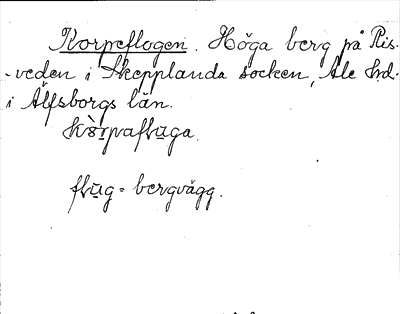 Korpeflogen. Höga berg på Ris-
-veden i Skepplanda socken, Ale hrd.
i Älfsborgs län.
kòrpafluga.
flug = bergvägg.